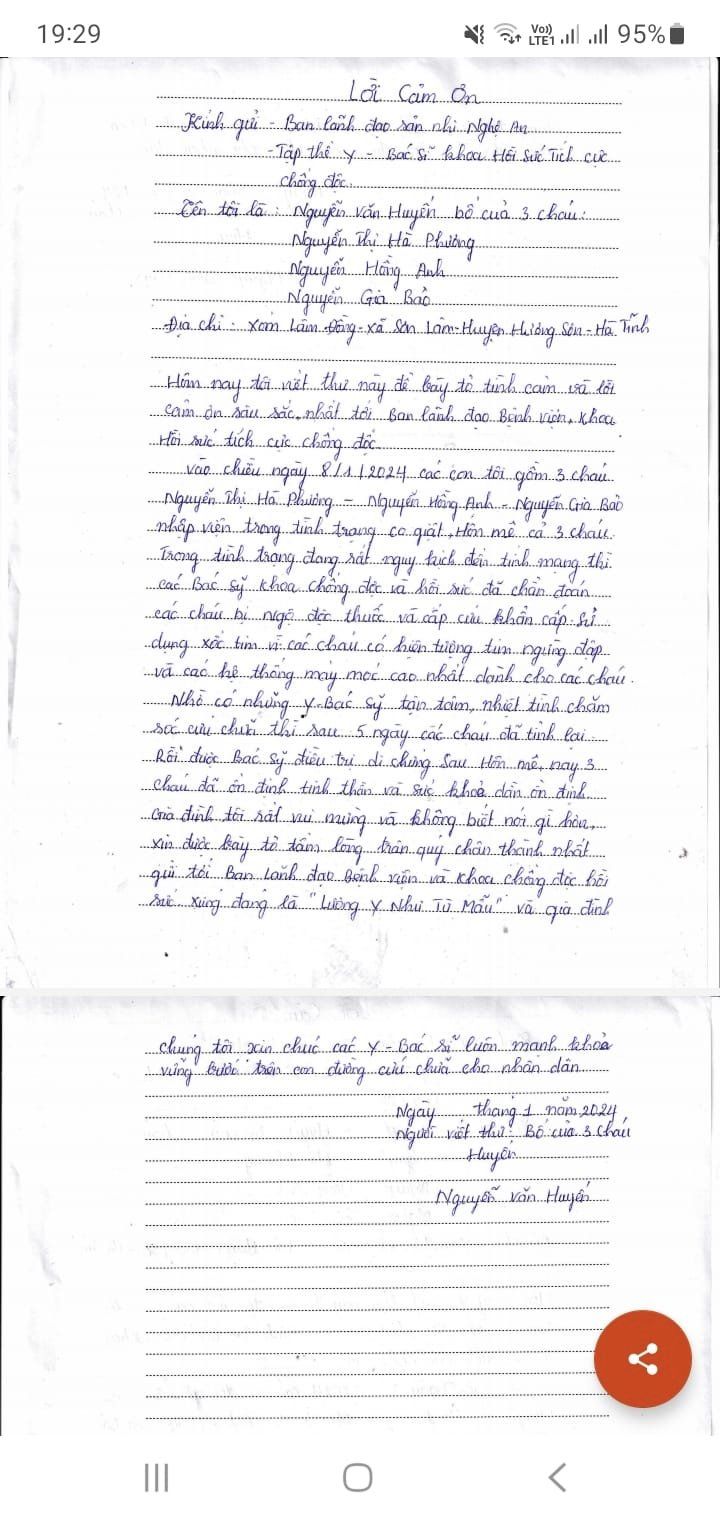 19:29
Vo)) LTE1 95%
Lời Cảm Ơn
Kính gửi - Ban lãnh đạo sản nhi Nghệ An
- Tập thể Y - Bác sĩ khoa Hồi sức Tích cực
chống độc
Tên tôi là : Nguyễn Văn Huyến bố của 3 cháu :
Nguyễn Thị Hà Phương
Nguyễn Hồng Anh
Nguyễn Gia Bảo
Địa chỉ : xóm Lâm Đồng - xã Sơn Lâm - Huyện Hương Sơn - Hà Tĩnh
Hôm nay tôi viết thư này để bày tỏ tình cảm và lời
cảm ơn sâu sắc nhất tới Ban lãnh đạo Bệnh viện, khoa
Hồi sức tích cực chống độc
vào chiều ngày 8/1/2024 các con tôi gồm 3 cháu
Nguyễn Thị Hà Phương - Nguyễn Hồng Anh - Nguyễn Gia Bảo
nhập viện trong tình trạng co giật, Hôn mê cả 3 cháu.
Trong tình trạng đang rất nguy kịch đến tính mạng thì
các Bác sỹ khoa chống độc và hồi sức đã chẩn đoán
các cháu bị ngộ độc thuốc và cấp cứu khẩn cấp. Sử
dụng xốc tim vì các cháu có hiện tượng tim ngừng đập
và các hệ thống máy móc cao nhất dành cho các cháu.
Nhờ có những y - Bác sỹ tận tâm, nhiệt tình chăm
sóc cứu chữa thì sau 5 ngày các cháu đã tỉnh lại.
Rồi được Bác sỹ điều trị di chứng sau Hôn mê, nay 3
cháu đã ổn định tinh thần và sức khoẻ dần ổn định
Gia đình tôi rất vui mừng và không biết nói gì hơn,
xin được bày tỏ tấm lòng trân quý chân thành nhất
gửi tới Ban Lãnh đạo Bệnh viện và khoa chống độc hồi
sức xứng đáng là "Lương Y Như Từ Mẫu" và gia đình
chúng tôi xin chúc các Y - Bác sĩ luôn mạnh khỏe
vững bước trên con đường cứu chữa cho nhân dân
Ngày tháng 1 năm 2024
Người viết thư : Bố của 3 cháu
Huyến
Nguyễn Văn Huyến